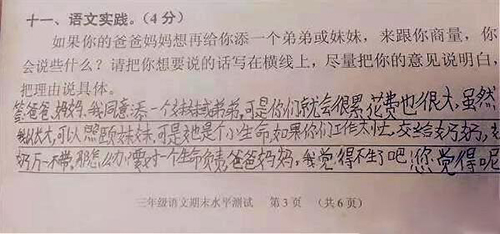 十一、语文实践。(4分)
如果你的爸爸妈妈想再给你添一个弟弟或妹妹，来跟你商量，你
会说些什么？请把你想要说的话写在横线上，尽量把你的意见说明白，
把理由说具体。
答爸爸，妈妈，我同意添一个妹妹或弟弟，可是你们就会很累，花费也很大，虽然
我长大，可以照顾妹妹，可是她是个小生命如果你们工作太忙，交给奶奶，奶
奶万一不带，那怎么办，要对一个生命负责，爸爸妈妈，我觉得不生了吧您觉得呢
三年级语文期末水平测试 第3页 (共6页)